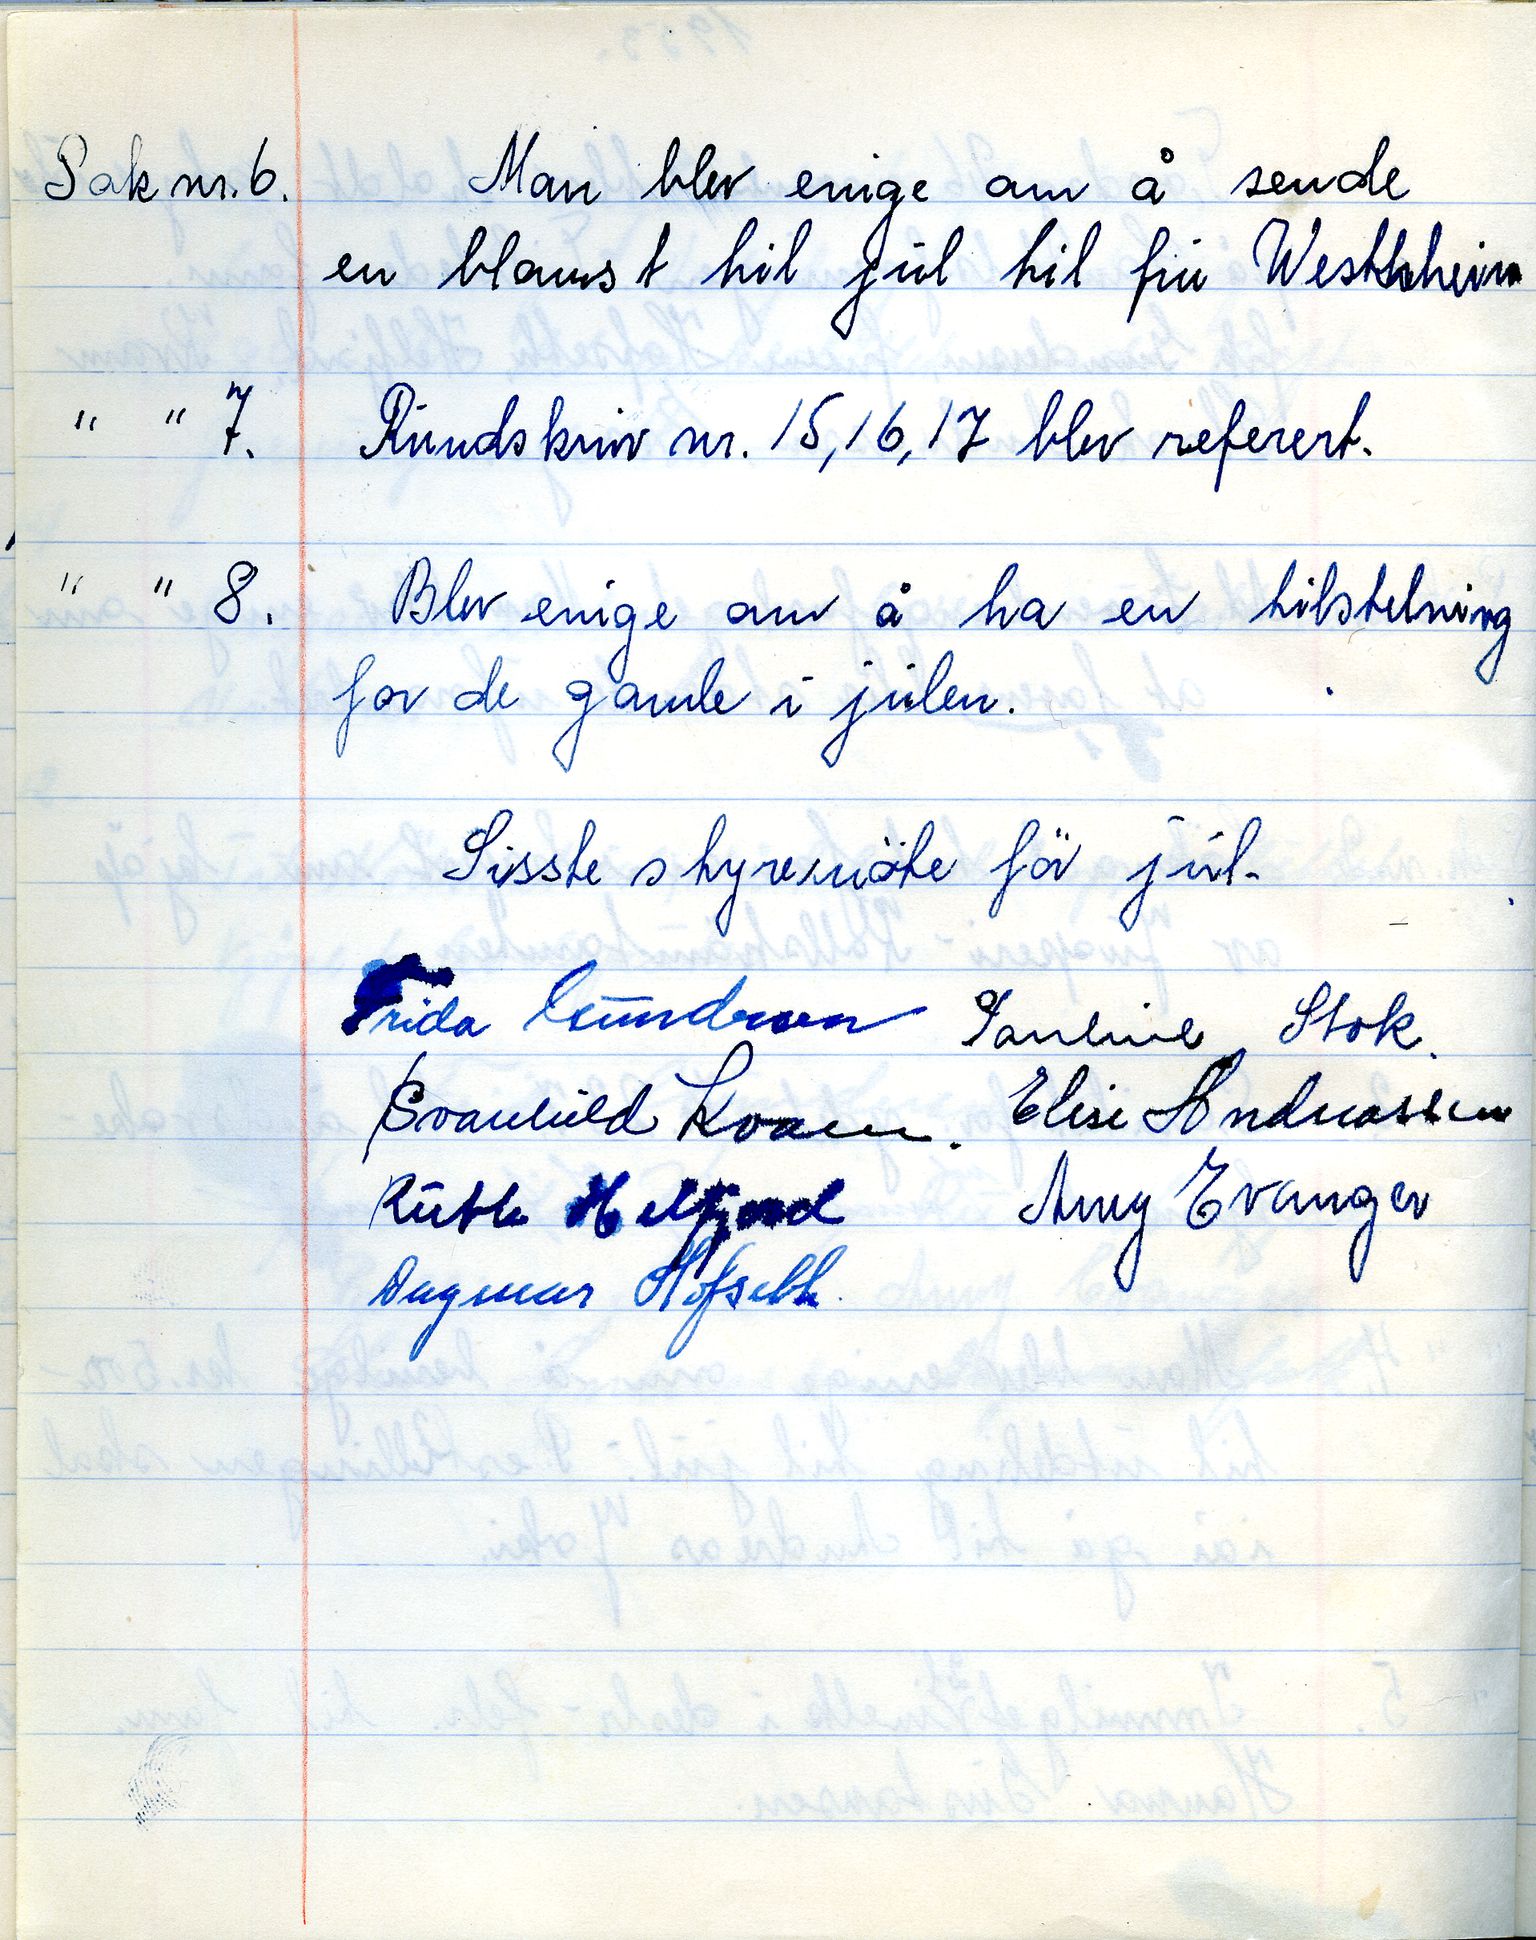 Sak nr. 6. Man blev enige om å sende
en blomst til jul til fru Westhheim
" " 7. Rundskriv nr. 15, 16, 17 blev referert.
" " 8. Blev enige om å ha en tilstelning
for de gamle i julen.
Sisste styremöte för jul.
Frida Gundersen Pauline Stok.
Svanhild Kvam. Elise Andreassen
Ruth Helfjord Amy Evanger
Dagmar Hofseth.